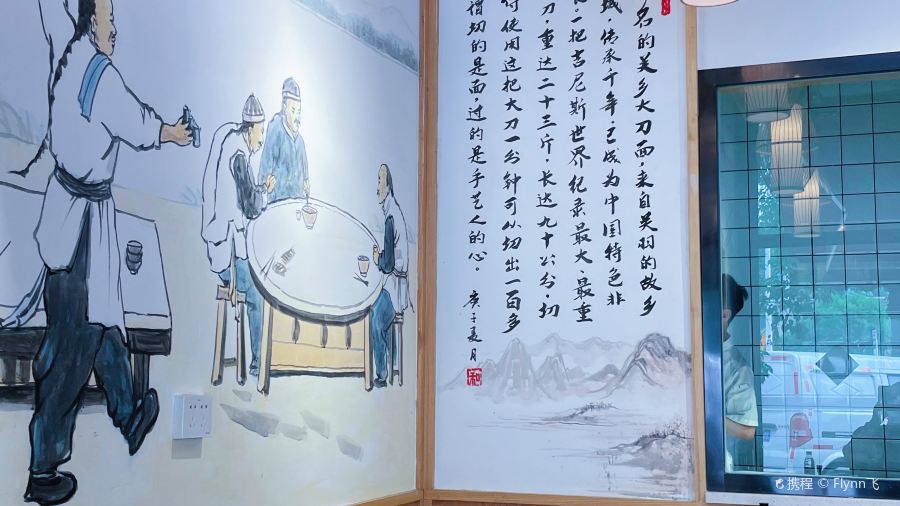 名的美乡大刀面，来自关羽的故乡
城，传承千年，已成为中国特色非
一把吉尼斯世界纪录最大、最重
刀，重达二十三斤，长达九十公分，切
使用这把大刀一分钟可以切出一百多
谓切的是面，过的是手艺人的心。
庚子夏月
和
携程 © Flynn飞